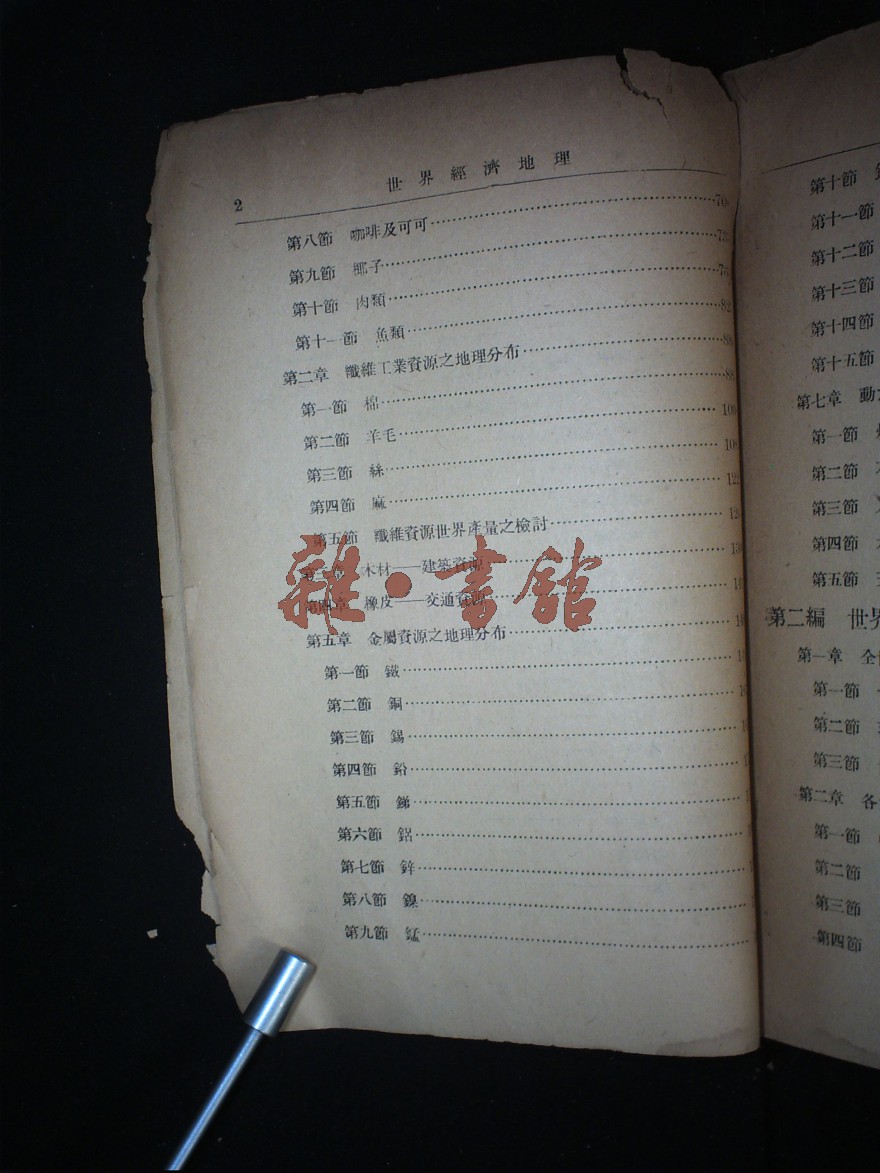 2
世界經濟地理
第八節 咖啡及可可
第九節 椰子
第十節 肉類
第十一節 魚類
第二章 纖維工業資源之地理分布
第一節 棉
第二節 羊毛
第三節 絲
第四節 麻
第五節 纖維資源世界產量之檢討
第三章 木材——建築資源
第四章 橡皮——交通資源
第五章 金屬資源之地理分布
第一節 鐵
第二節 銅
第三節 錫
第四節 鉛
第五節 銻
第六節 鋁
第七節 鋅
第八節 鎳
第九節 錳
雜·書館
第十節
第十一節
第十二節
第十三節
第十四節
第十五節
第七章 動
第一節
第二節
第三節
第四節
第五節
第二編 世界
第一章 全
第一節
第二節
第三節
第二章 各
第一節
第二節
第三節
第四節